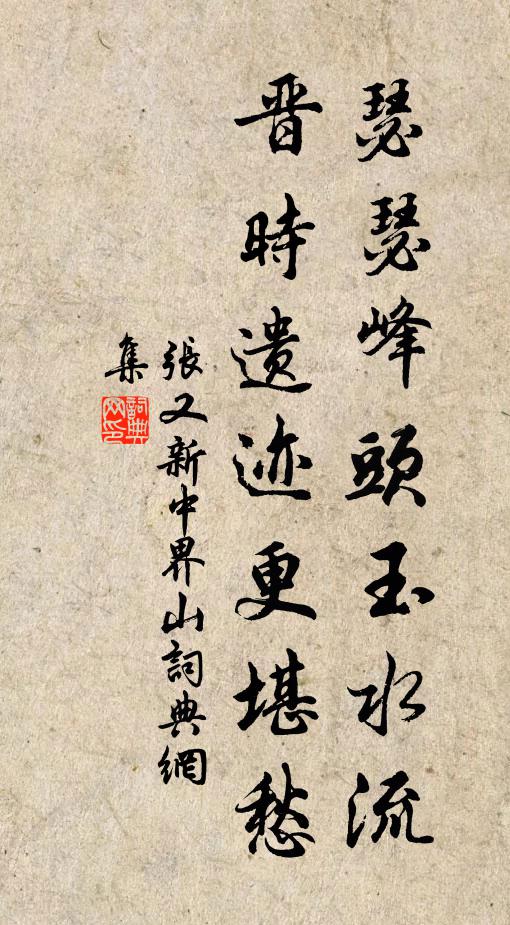 瑟瑟峰頭玉水流
晋時遺迹更堪愁
張又新中界山詞典網
集
詞典網印